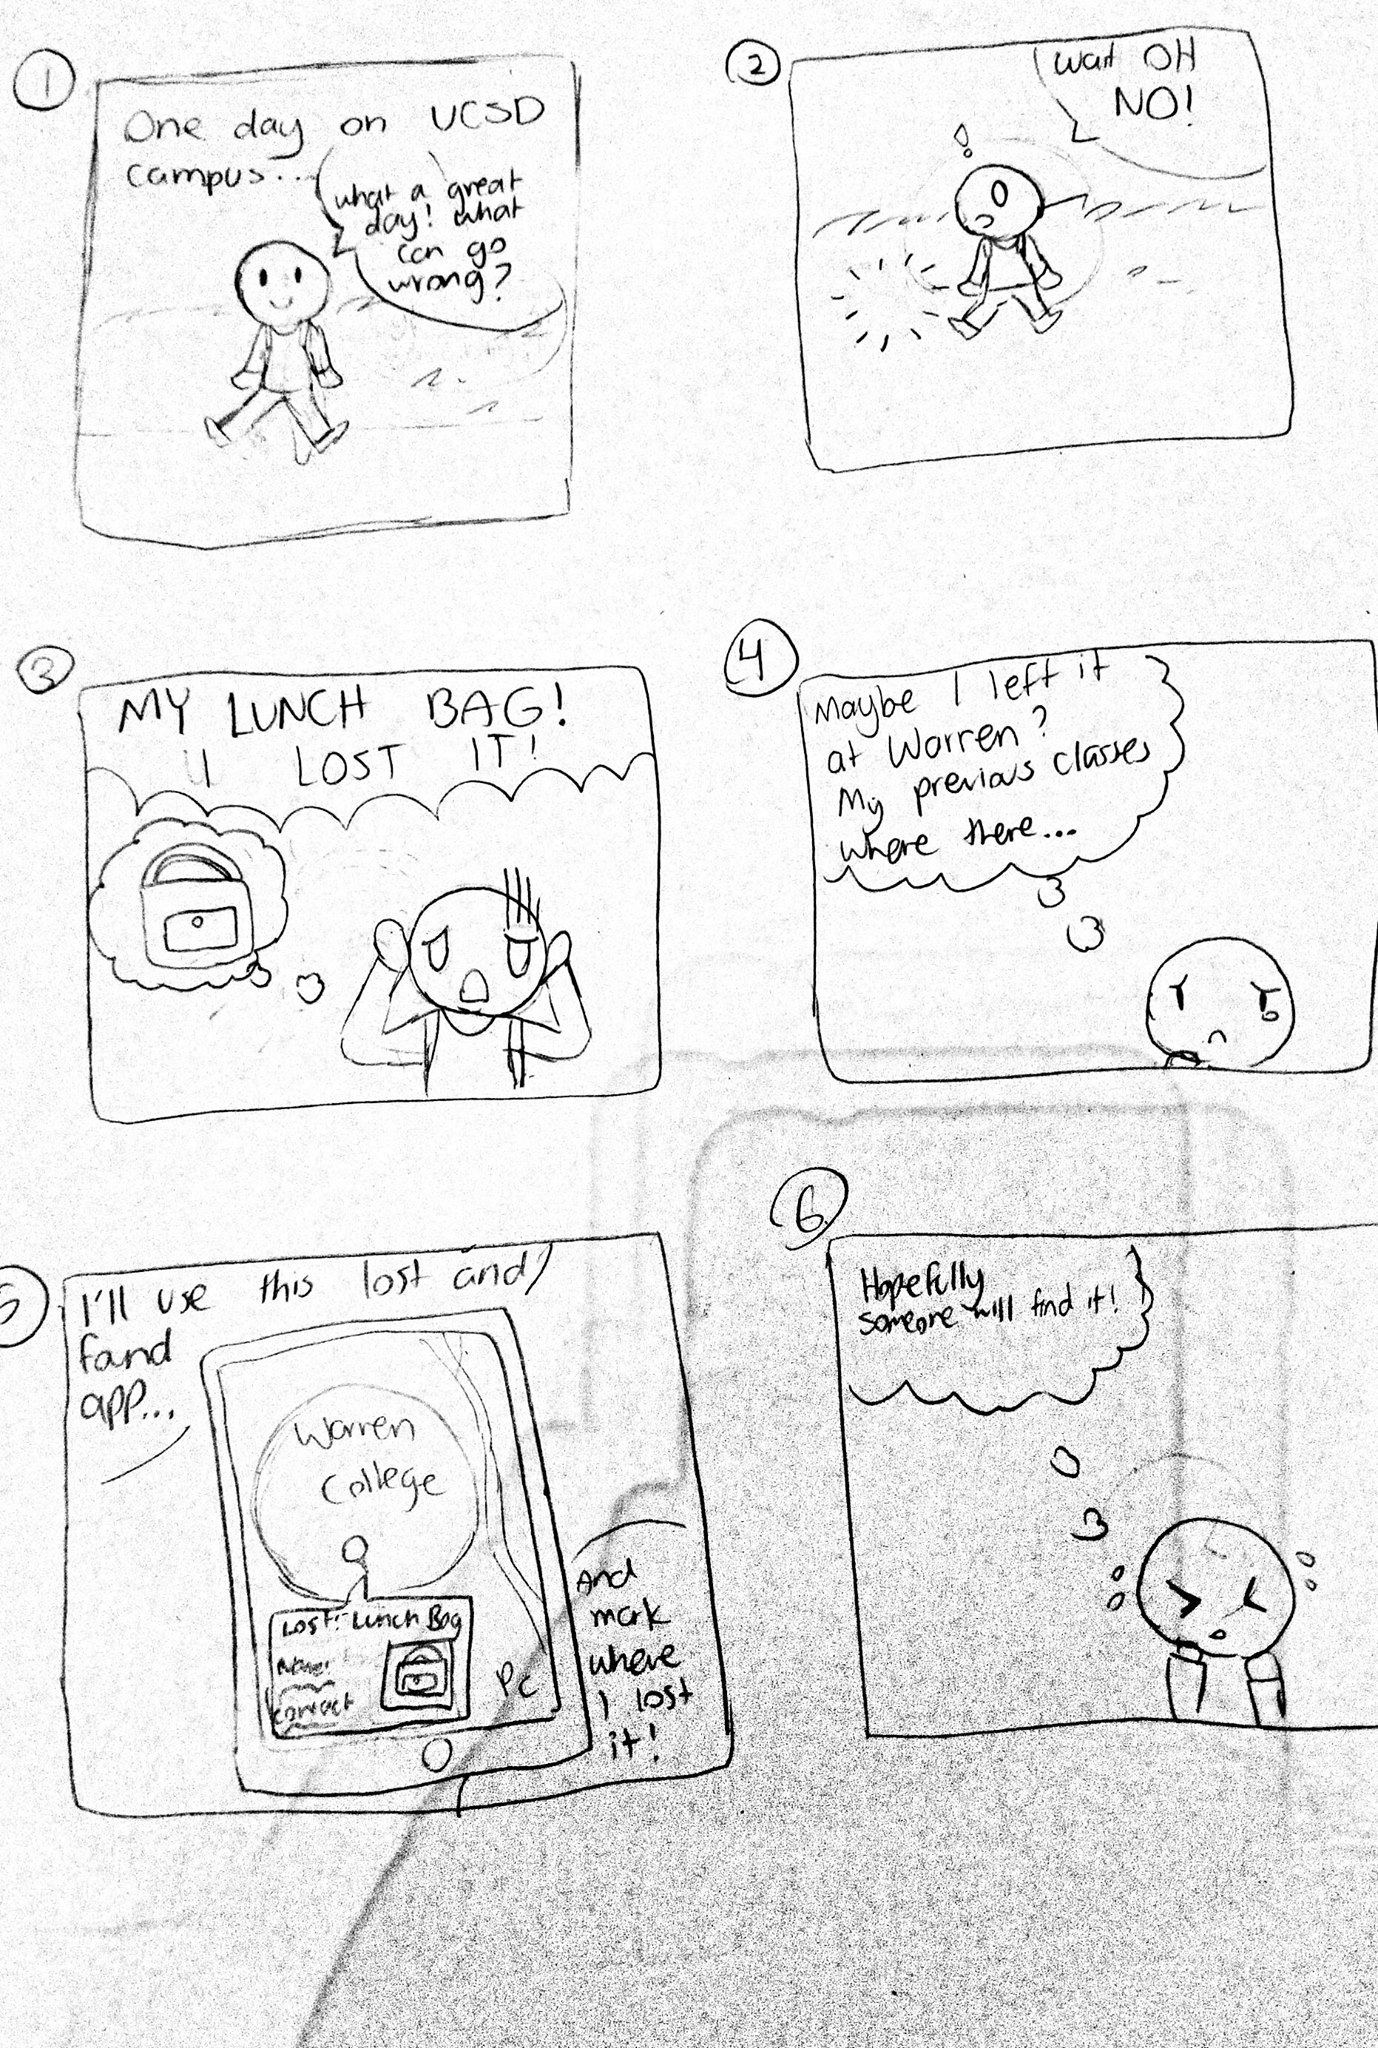 1
One day on UCSD
campus...
what a great
day! what
can go
wrong?
2
wait OH
NO!
3
MY LUNCH BAG!
I LOST IT!
4
Maybe I left it
at Warren?
My previous classes
where there...
5
I'll use this lost and
fand
app...
Warren
College
LOST: Lunch Bag
Name:
contact
PC
And
mark
where
I lost
it!
6
Hopefully
someone will find it!